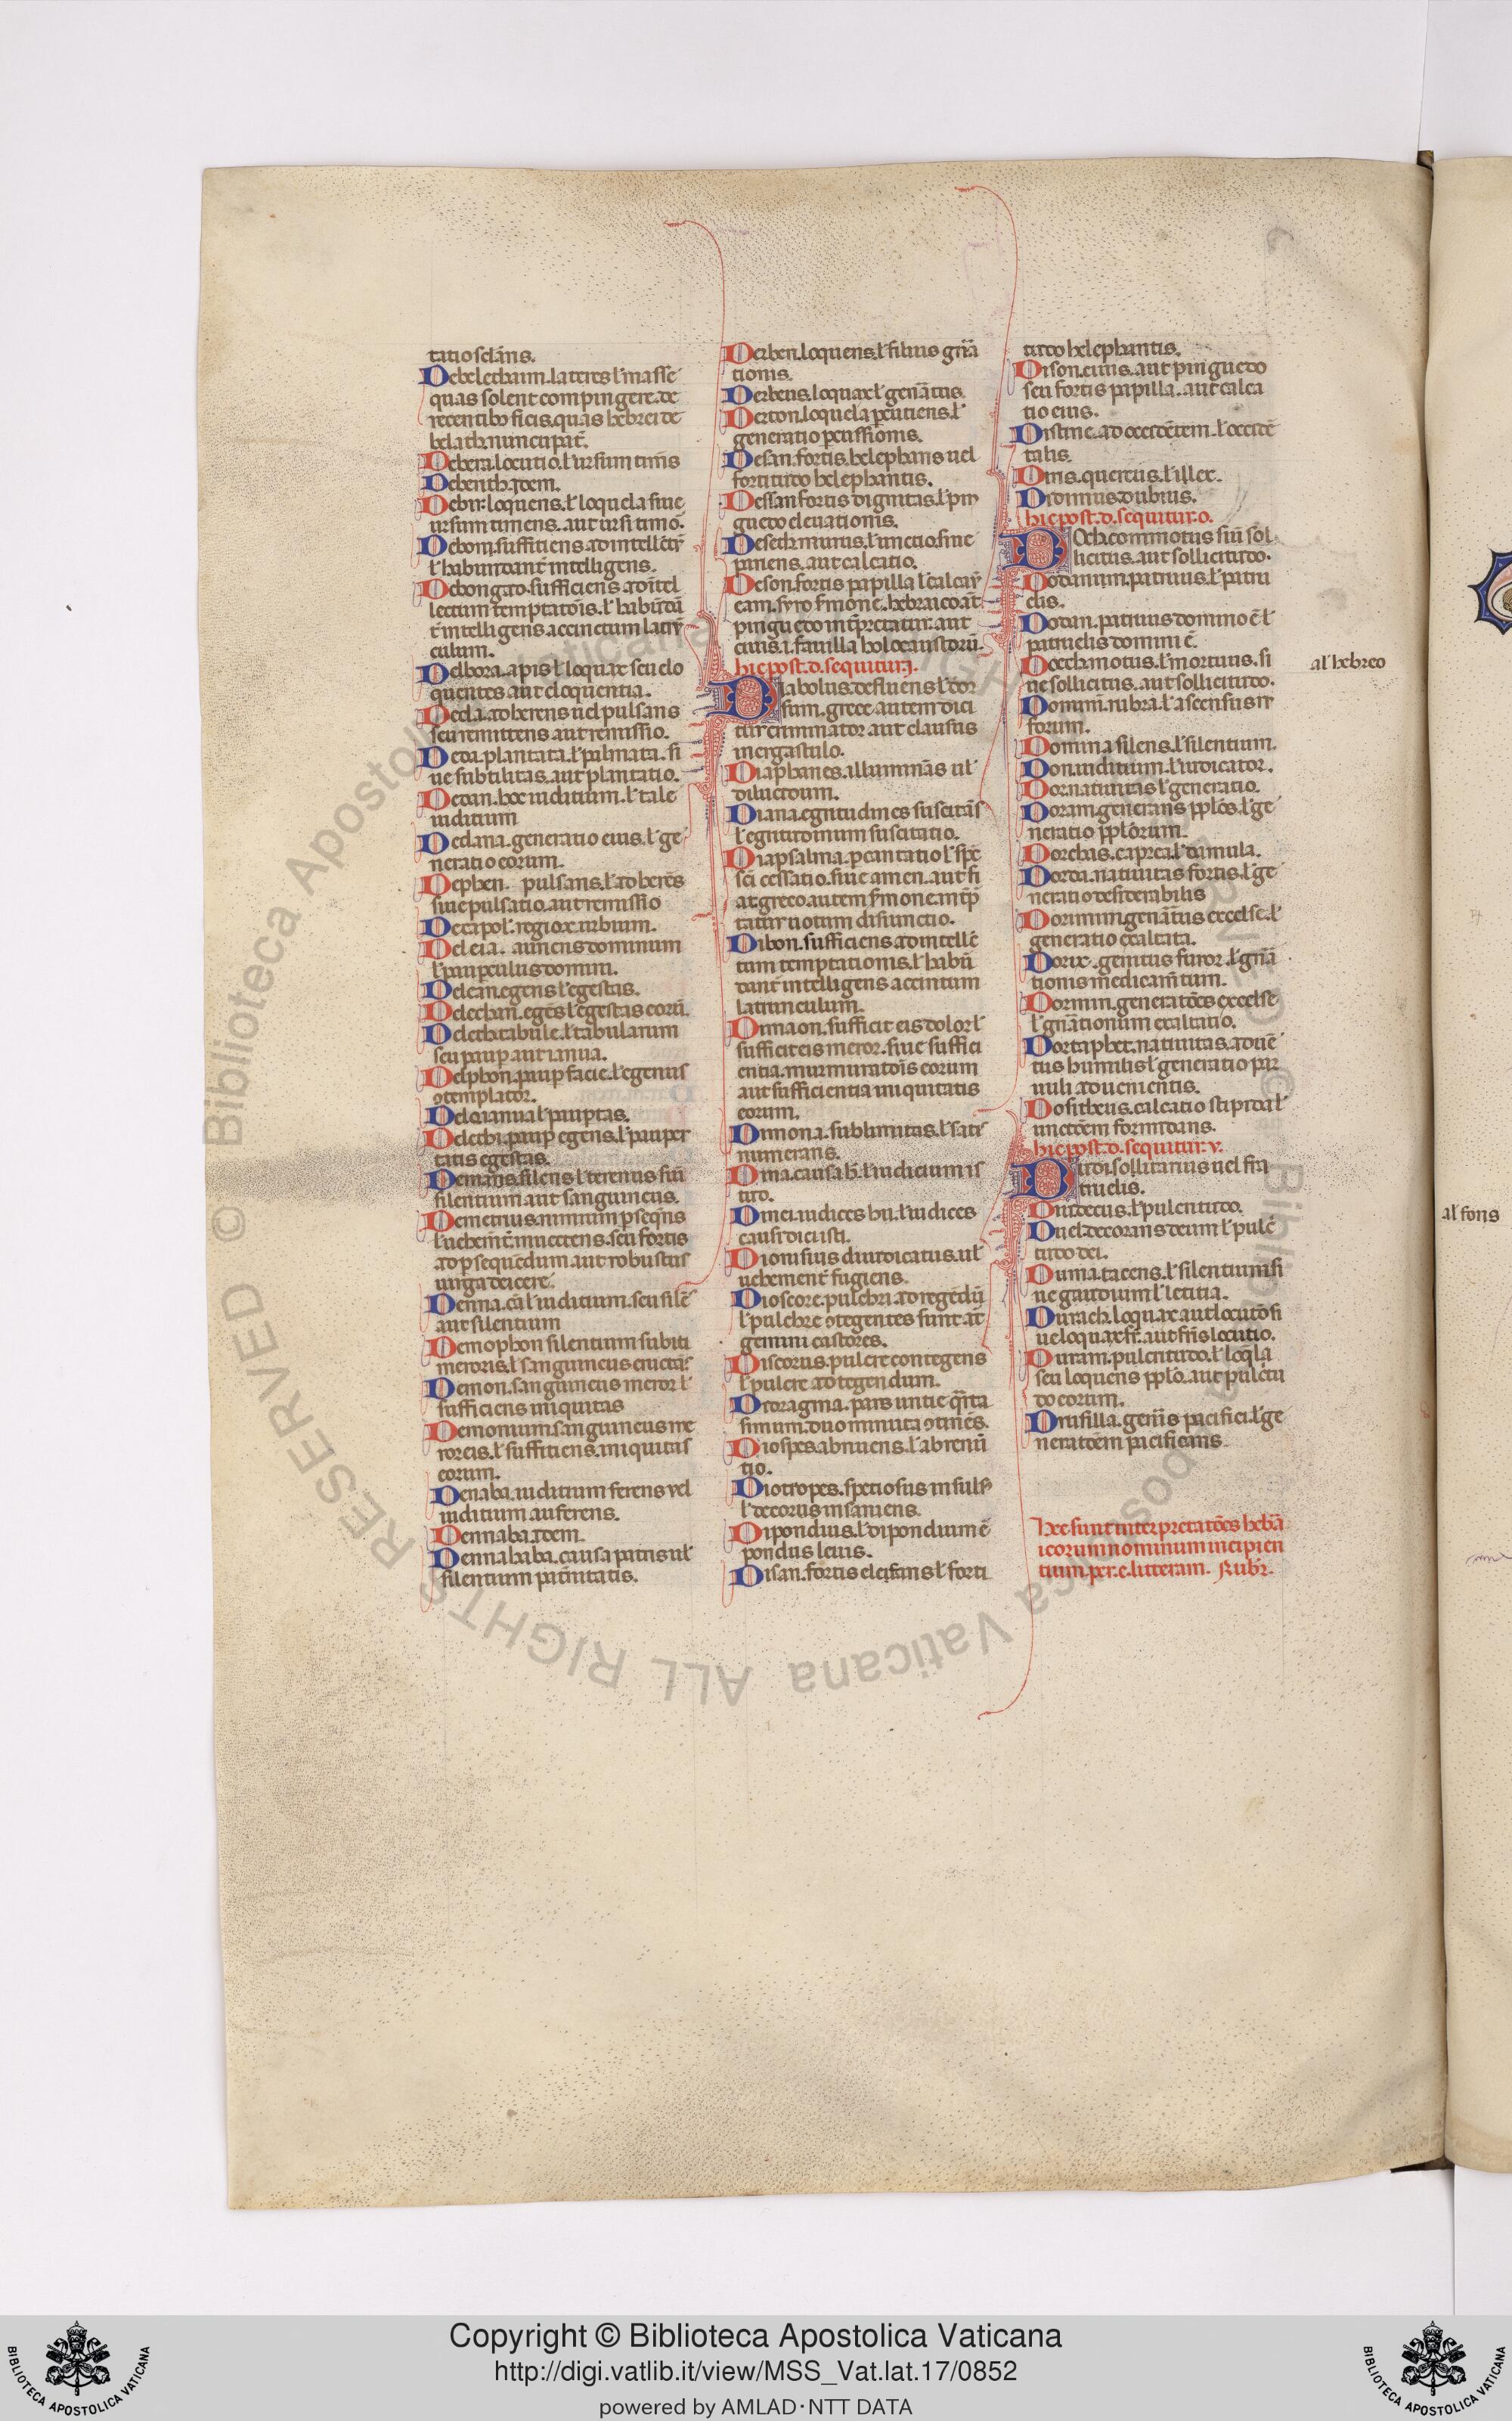 tatio sclāns.
Debelethaim. lateres. ł masse
quas solent compingere. de
recentib; ficis. quas hebrei de
belath nuncupāt.
Debera. locutio. ł ursum timēs
Debenth. idem.
Debir. loquens. ł loquela siue
ursum timens. aut ursi timor̄.
Debon. suffitiens ad intellēctū
ł habundant̄ intelligens.
Debongad. sufficiens ad itel
lectum temptatōis. ł habūdā
t̄ intelligens accinctum latrū
culum.
Delbora. apis ł loquax seu elo
quentes aut eloquentia.
Decla. adherens uel pulsans
seu remittens aut remissio.
Deda. plantata. ł palmata. si
ue subtilitas. aut plantatio.
Dedan. hoc iuditium. ł tale
iuditium
Dedana. generatio eius. ł ge
neratio eorum.
Dephen. pulsans. ł adherēs
siue pulsatio. aut remissio
Decapol̄. regio x. urbium.
Deleia. auriens dominum
ł paupculus domini.
Delean. egens ł egestas.
Deleehan. egēs ł egestas eorū.
Delech. tabule. ł tabularum
seu paup aut ianua.
Delphon. paup facie. ł egenus
ɔtemplator.
Delo. ianua ł pauptas.
Delechi. paup egens. ł pauper
tatis egestas.
Demās. silens ł terenus siū
silentium aut sanguineus.
Demetrius. nimium pseqns
ł uehemēt̄ inuectens. seu fortis
ad psequēdum. aut robustus
uirga deicere.
Denna. eā ł iuditium. seu silē
aut silentium
Demophon silentium subiti
meroris. ł sanguineus eructās
Demon. sanguineus meror ł
sufficiens iniquitas
Demonium. sanguineus me
ror eis. ł suffitiens. iniquitas
eorum.
Denaba. iuditium ferens vel
iuditium auferens.
Dennaba. idem.
Dennahaba. causa patris uł
silentium paternitatis.
Derben. loquens. ł filius gn̄a
tionis.
Derbeus. loquax ł gen̄atus.
Derton. loquela pcutiens. ł
generatio pcussionis.
Desan. fortis. helephans uel
fortitudo helephantis.
Dessan fortis dignitas. ł pin
guedo eleuationis.
Deseth murus. ł unctio. siue
pinens. aut calcatio.
Deson. fortis papilla ł calcar̄
eam. syro s̄mone. hebraico at̄
pinguedo int̄pretatur. aut
cinis. i. fauilla holocaustorū.
hic post. d. sequitur. i.
Diabolus. defluens ł deor
sum. grece autem dici
tur criminator aut clausus
in ergastulo.
Diaphanes. illuminās uł
diluctdum.
Diana. egritudines suscitās
ł egritudinum suscitatio.
Diapsalma. pcantatio ł spc̄
sci cessatio. siue amen. aut fi
at. greco autem s̄mone. int̄p
tatur uotum disiunctio.
Dibon. sufficiens ad intelle
ctum temptationis. ł habū
dant̄ intelligens accintum
latrunculum.
Dimaon. sufficit eis dolor ł
sufficit eis meror. siue suffici
entia. murmuratōis eorum
aut sufficientia iniquitatis
eorum.
Dimona. sublimitas. ł sati
numerans.
Dina. causa h̄. ł iudicium is
tud.
Dinei. iudices hii. ł iudices
causidici isti.
Dionisius diiudicatus. uł
uehement̄ fugiens.
Dioscore. pulchri ad regēdū
ł pulchre ɔtegentes sunt at̄
gemini castores.
Discorus. pulcre contegens
ł pulcre ad tegendum.
Didragma. pars untie q̄rta
simum. duo minuta ɔtinēs.
Diospes. abnuens. ł abrenū
tio.
Diotropes. spetiosus insuls̄
ł decorus insaniens.
Dipondius. ł dipondium ē
pondus leuis.
Disan. fortis elefans ł forti
tudo helephantis.
Dison. cinis. aut pinguedo
seu fortis papilla. aut calca
tio eius.
Distine. ad occidētem. ł occidē
talis.
Diris. quercus. ł illex.
Didimus dubius.
hic post. d. sequitur. o.
Doch commotus siū sol
licitus. aut sollicitudo.
Dodanum. patruus. ł patru
elis.
Dodan. patruus domino ē ł
patruelis domini ē.
Doech motus. ł mortuus. si
ue sollicitus. aut sollicitudo.
Domim̄. rubra. ł ascensus ir
forum.
Domina silens. ł silentium.
Don. iuditium. ł iudicator.
Dor natiuitas ł generatio.
Doram. generans pplōs. ł ge
neratio pplorum.
Dorchas. caprea. ł damula.
Dorda. natiuitas fortis. ł ge
neratio desiderabilis
Dorimim gen̄atus excelse. ł
generatio exaltata.
Dorix. genitus furor. ł gn̄a
tionis medicam̄tum.
Dormin. generatōes excelse
ł gn̄ationum exaltatio.
Dortaphet. natiuitas. aduē
tus humilis ł generatio par
uuli aduenientis.
Dositheus. calcatio stipidā ł
unctōem formidans.
hic post. d. sequitur. v.
Dudi. sollitarius uel fra
truelis.
Dui. decus. ł pulcritudo.
Duel. decorans deum ł pulc̄
tudo dei.
Duma. tacens. ł silentium si
ue gaudium ł letitia.
Durach. loquax aut locutō si
ue loquax fr̄. aut fr̄is locutio.
Duram. pulcritudo. ł loq̄la
seu loquens pplō. aut pulcritu
do eorum.
Drusilla. gen̄is pacifici. ł ge
neratōem pacificans
Hec sunt interpretatōes hebra
icorum nominum incipien
tium. per. e. litteram. Rubr̄.
al hebreo
al fons
Copyright © Biblioteca Apostolica Vaticana
http://digi.vatlib.it/view/MSS_Vat.lat.17/0852
powered by AMLAD · NTT DATA
BIBLIOTECA APOSTOLICA VATICANA
BIBLIOTECA APOSTOLICA VATICANA
© Biblioteca Apostolica Vaticana ALL RIGHTS RESERVED